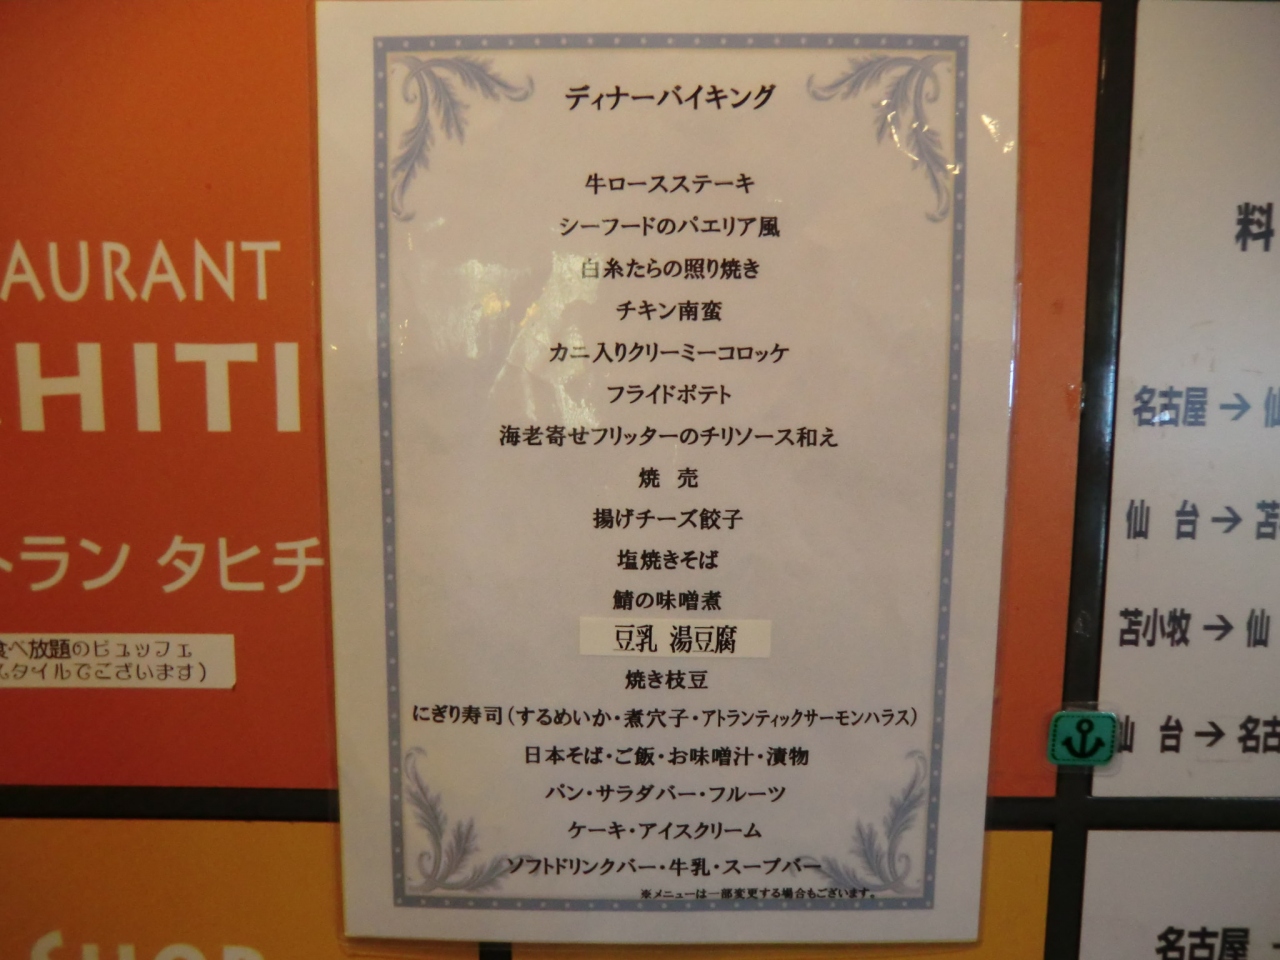 ディナーバイキング
牛ロースステーキ
シーフードのパエリア風
白糸たらの照り焼き
チキン南蛮
カニ入りクリーミーコロッケ
フライドポテト
海老寄せフリッターのチリソース和え
焼　売
揚げチーズ餃子
塩焼きそば
鯖の味噌煮
豆乳 湯豆腐
焼き枝豆
にぎり寿司(するめいか・煮穴子・アトランティックサーモンハラス)
日本そば・ご飯・お味噌汁・漬物
パン・サラダバー・フルーツ
ケーキ・アイスクリーム
ソフトドリンクバー・牛乳・スープバー
※メニューは一部変更する場合もございます。
AURANT
HITI
トラン タヒチ
食べ放題のビュッフェ
スタイルでございます)
料
名古屋 → 仙
仙 台 → 苫
苫小牧 → 仙
仙 台 → 名古
名古屋